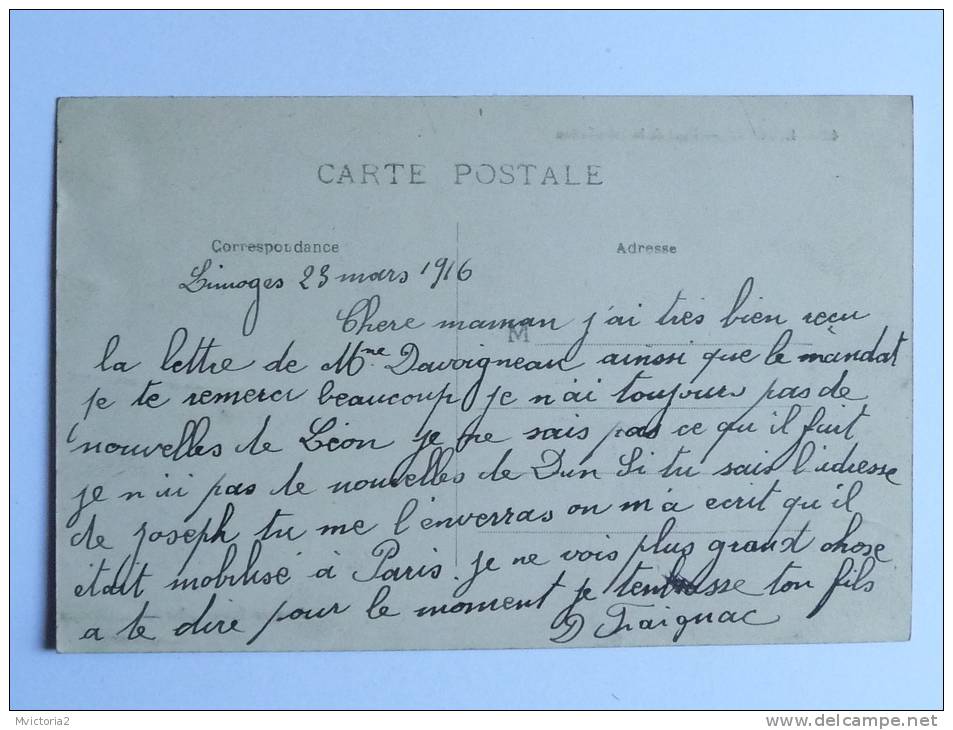 CARTE POSTALE
Correspondance
Adresse
M
Limoges 23 mars 1916
Chere maman j'ai très bien reçu
la lettre de Mme Davoigneau ainsi que le mandat
je te remerci beaucoup je n'ai toujours pas de
nouvelles de Léon je ne sais pas ce qu'il fait
je n'ai pas de nouvelles de Dun Si tu sais l'adresse
de joseph tu me l'enverras on m'a ecrit qu'il
était mobilisé à Paris. je ne vois plus grand chose
a te dire pour le moment je tembrasse ton fils
D Traignac
Mvictoria2
www.delcampe.net